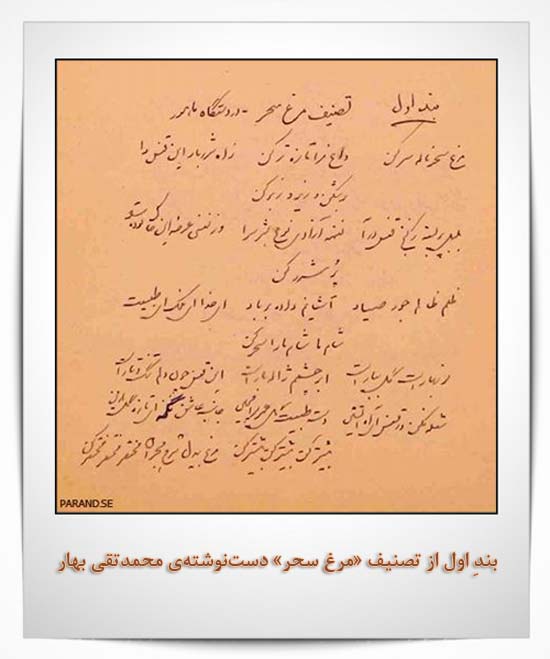 بند اول تصنیف مرغ سحر - در دستگاه ماهور
مرغ سحر ناله سر کن داغ مرا تازه تر کن زاه شرر بار این قفس را
برشکن و زیر و زبر کن
بلبل پر بسته ز کنج قفس درآ نغمه آزادی نوع بشر سرا وز نفسی عرصه این خاک توده را
پر شرر کن
ظلم ظالم جور صیاد آشیانم داده بر باد ای خدا ای فلک ای طبیعت
شام تاریک ما را سحر کن
نوبهار است گل ببار است ابر چشمم ژاله بار است این قفس چون دلم تنگ و تار است
شعله فکن در قفس ای آه آتشین دست طبیعت گل عمر مرا مچین جانب عاشق نگه ای تازه گل ازین
بیشتر کن بیشتر کن بیشتر کن مرغ بیدل شرح هجران مختصر مختصر مختصر کن
PARAND.SE
بندِ اول از تصنیف «مرغ سحر» دست‌نوشته‌ی محمدتقی بهار